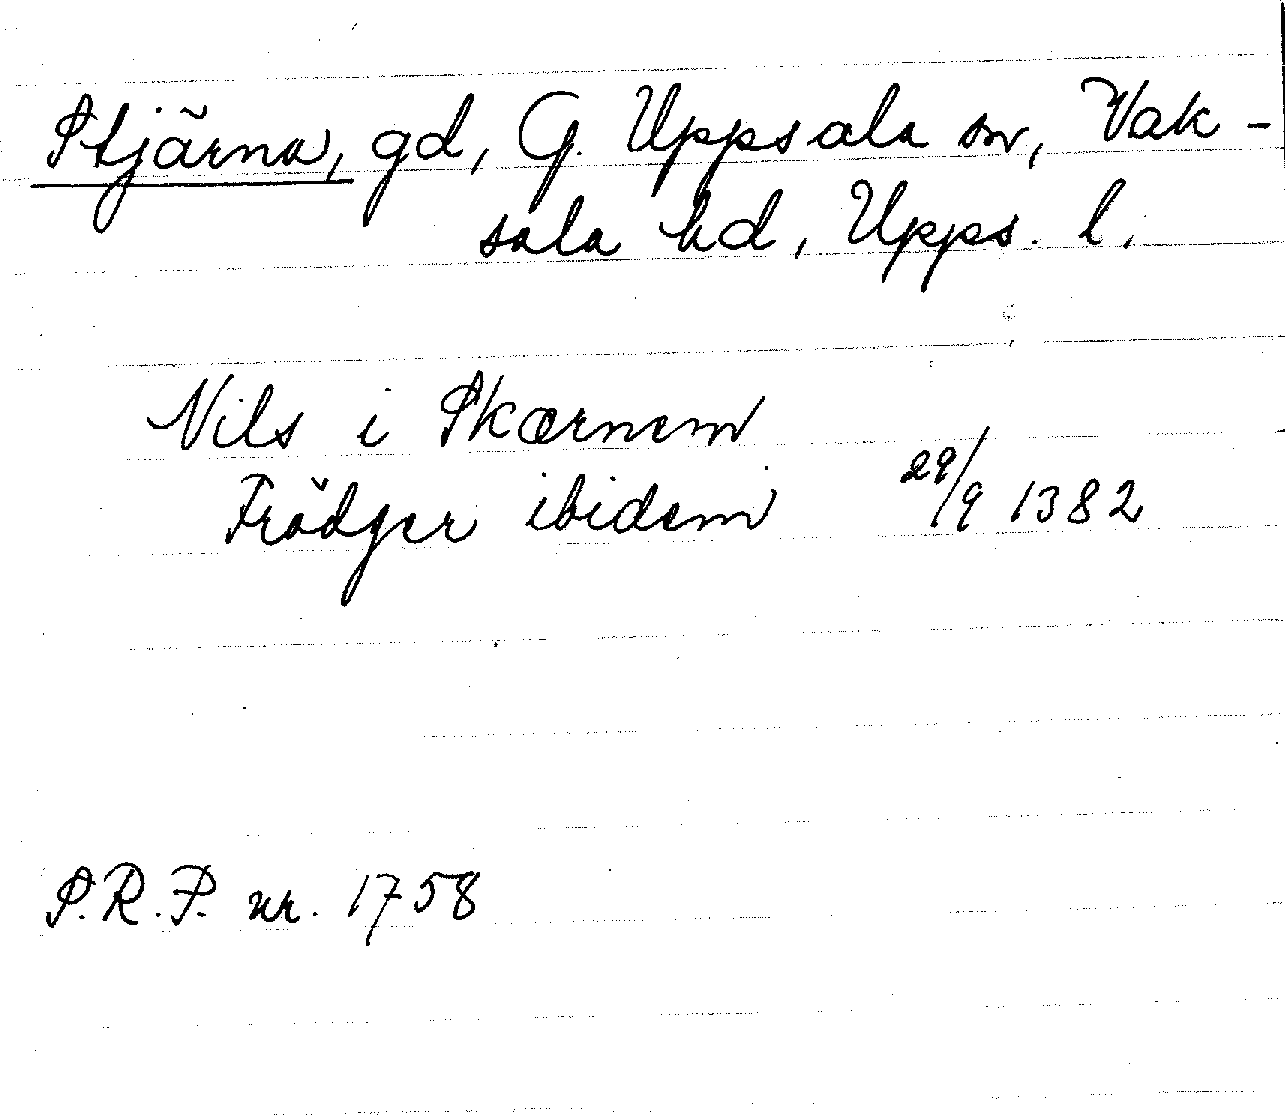 Stjärna, gd, G. Uppsala sn, Vak-
sala hd, Upps. l.
Nils i Skærnem
Frödger ibidem 29/9 1382
S.R.P. nr. 1758